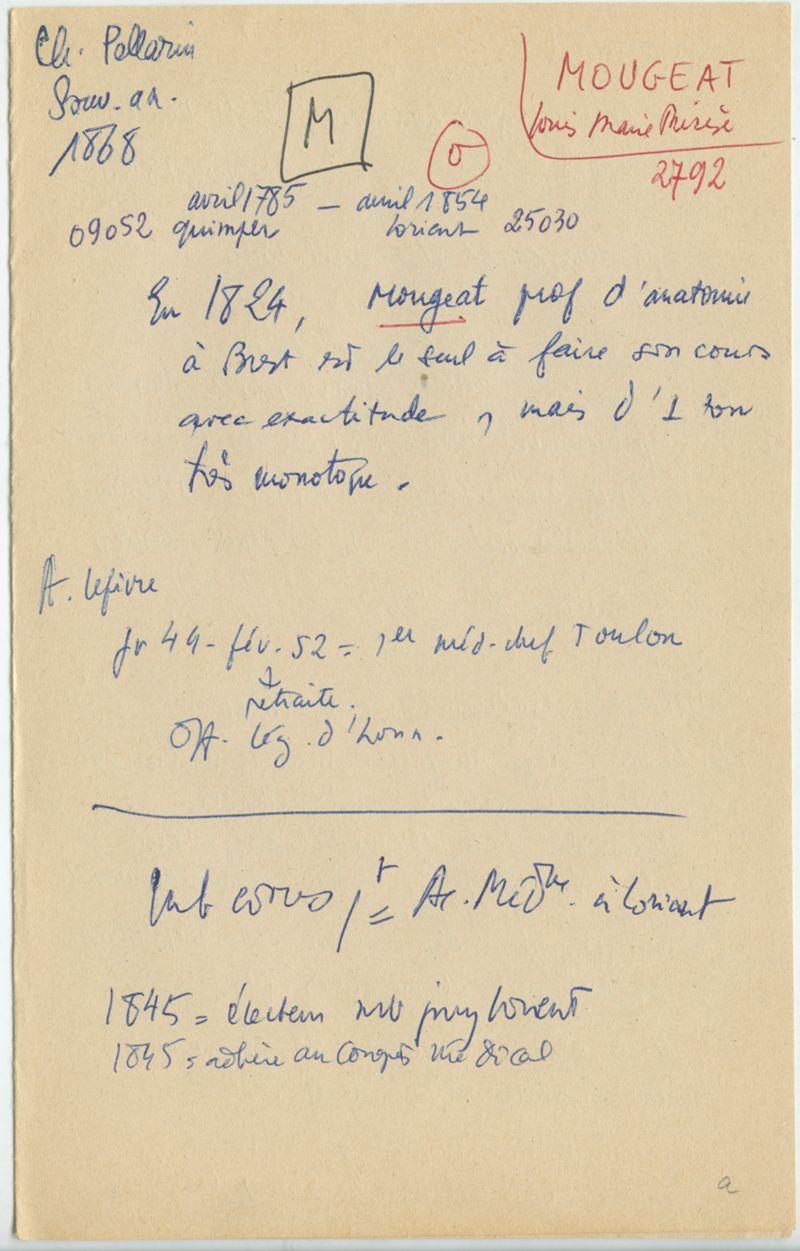 Ch. Pellarin
Souv. an.
1868
M
O
MOUGEAT
Louis Marie Thérèse
2792
avril 1785 — avril 1854
09052 quimper lorient 25030
En 1824, Mougeat prof d'anatomie
à Brest est le seul à faire son cours
avec exactitude, mais d'1 ton
très monotone.
A. Lefèvre
jr 49 - fév. 52 = 1er méd. chef Toulon
retraite.
Off. Lég. d'honn.
Mb corres Ac.Méd à Lorient
1845 = électeur mb jury Lorient
1845 = adhère au Congrès médical
a